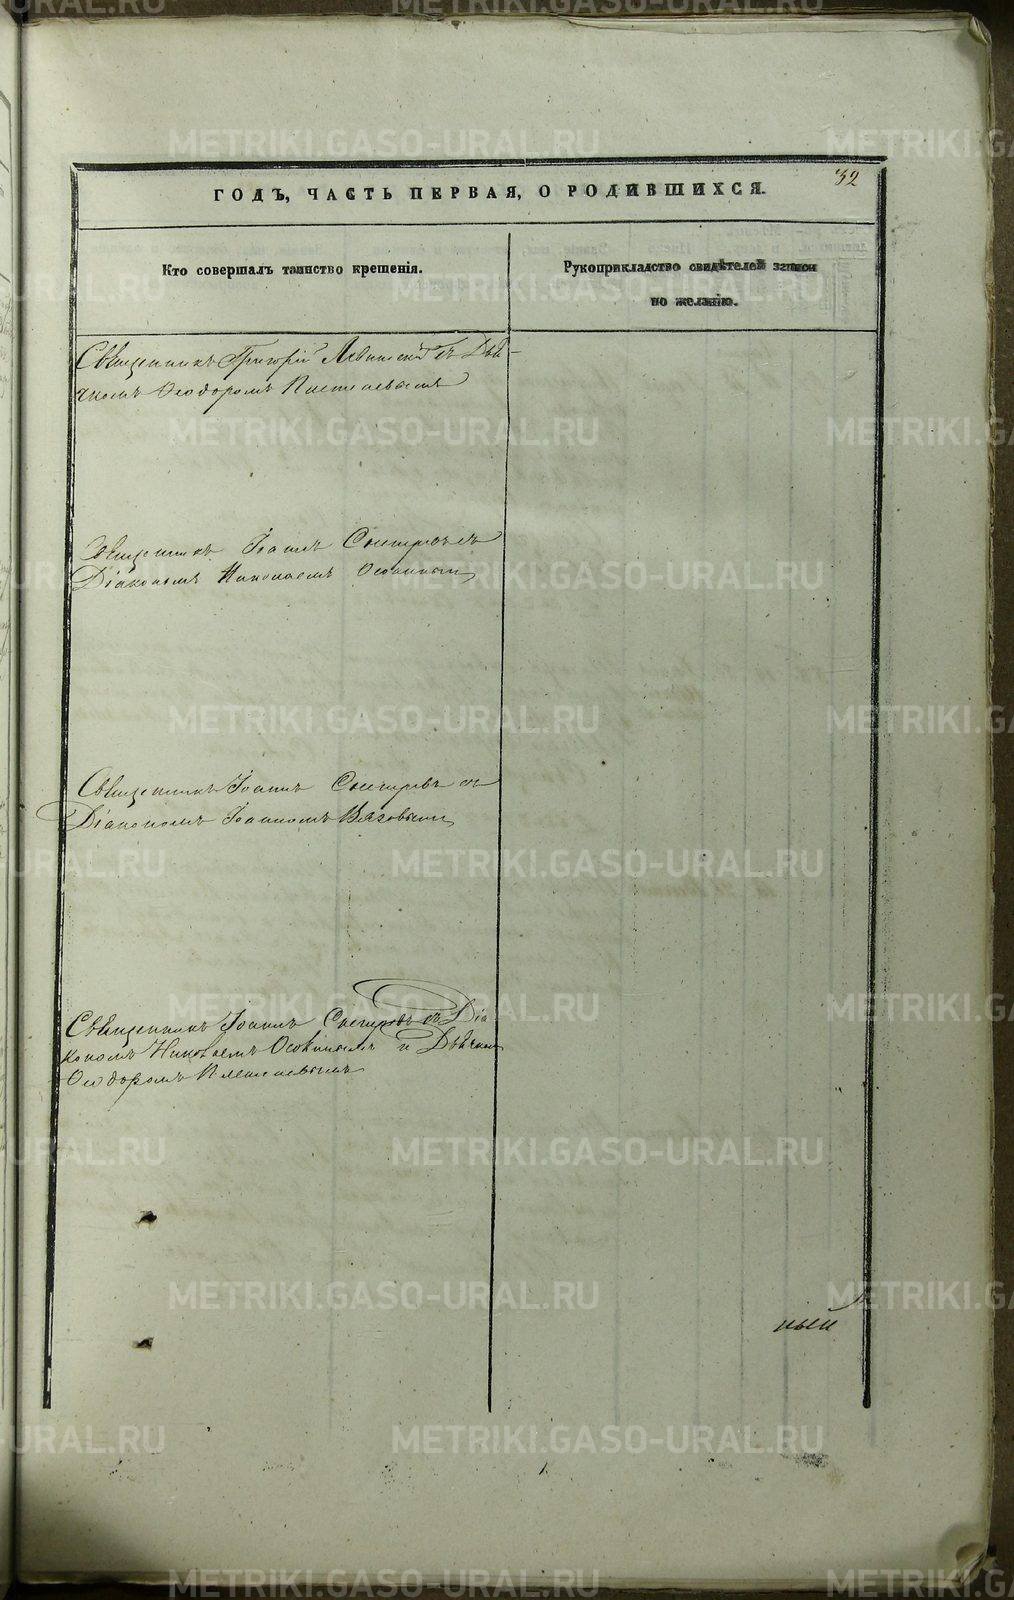 32
ГОДЪ, ЧАСТЬ ПЕРВАЯ, О РОДИВШИХСЯ.
Кто совершалъ таинство крещенія.
Рукоприкладство свидѣтелей записи
по желанію.
Священникъ Григорій Левитскій съ Дья-
чкомъ Ѳеодоромъ
Священникъ Іоаннъ Снегиревъ съ
Діакономъ Николаемъ Осокинымъ
Священникъ Іоаннъ Снегиревъ съ
Діакономъ Іоанномъ Вязовымъ
Священникъ Іоаннъ Снегиревъ съ Діа
кономъ Николаемъ Осокинымъ и Дьячкомъ
Ѳеодоромъ
ный
METRIKI.GASO-URAL.RU